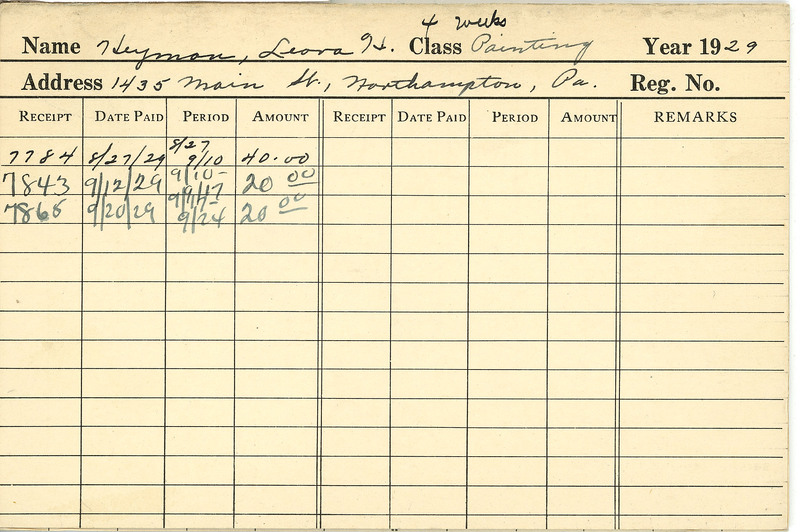 4 weeks
Name Heyman, Leora H. Class Painting Year 1929
Address 1435 Main St., Northampton, Pa. Reg. No.
RECEIPT DATE PAID PERIOD AMOUNT RECEIPT DATE PAID PERIOD AMOUNT REMARKS
8/27
7784 8/27/29 9/10 40.00
9/10-
7843 9/12/29 9/17 20 00
9/17-
7865 9/20/29 9/24 20 00